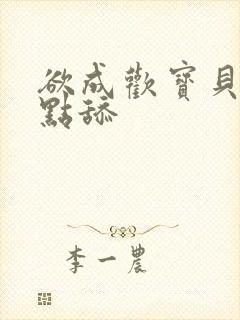 欲成歡寶貝
點舔
李一農